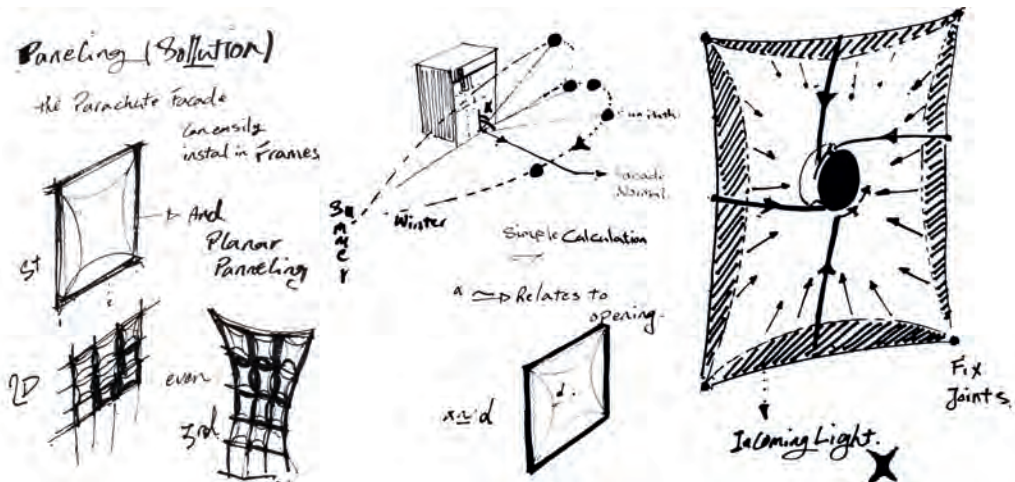 Paneling (Sollution)
the Parachute facade
Can ensily
instal in Frames
And
Planar
Panneling
St
2D
even
3rd
Summer
Winter
Facade
Normal.
Simple Calculation
Relates to
opening.
d
α ≃ d
Fix
Joints
Incoming Light.